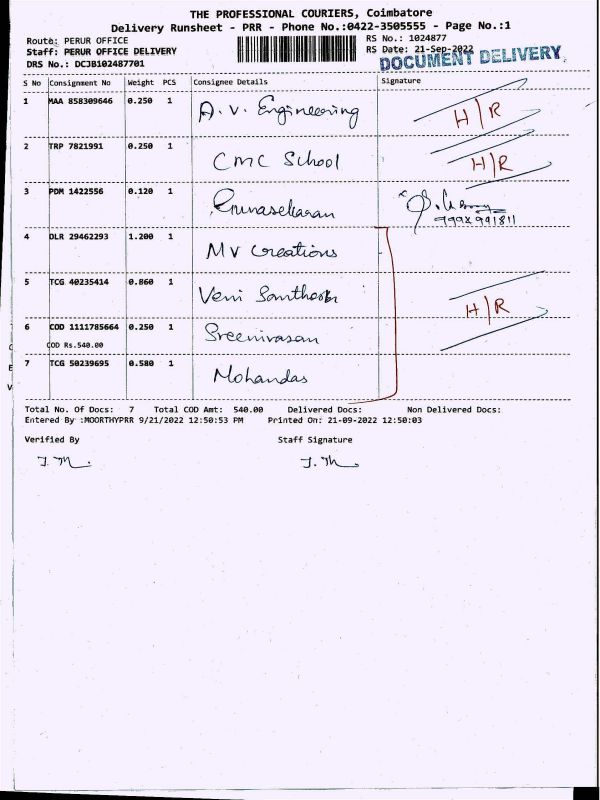 THE PROFESSIONAL COURIERS, Coimbatore
Delivery Runsheet - PRR - Phone No.:0422-3505555 - Page No.:1
Route: PERUR OFFICE
RS No.: 1024877
Staff: PERUR OFFICE DELIVERY
RS Date: 21-Sep-2022
DRS No.: DCJB102487701
DOCUMENT DELIVERY
S No Consignment No Weight PCS Consignee Details Signature
1 MAA 858309646 0.250 1 A. V. Engineering H/R
2 TRP 7821991 0.250 1 CMC School H/R
3 PDM 1422556 0.120 1 Gunasekaran
4 DLR 29462293 1.200 1 MV Creations
5 TCG 40235414 0.860 1 Veni Santhosh H/R
6 COD 1111785664 0.250 1 Sreenivasan
COD Rs.540.00
7 TCG 50239695 0.580 1 Mohandas
Total No. Of Docs: 7 Total COD Amt: 540.00 Delivered Docs: Non Delivered Docs:
Entered By :MOORTHYPRR 9/21/2022 12:50:53 PM Printed On: 21-09-2022 12:50:03
Verified By Staff Signature